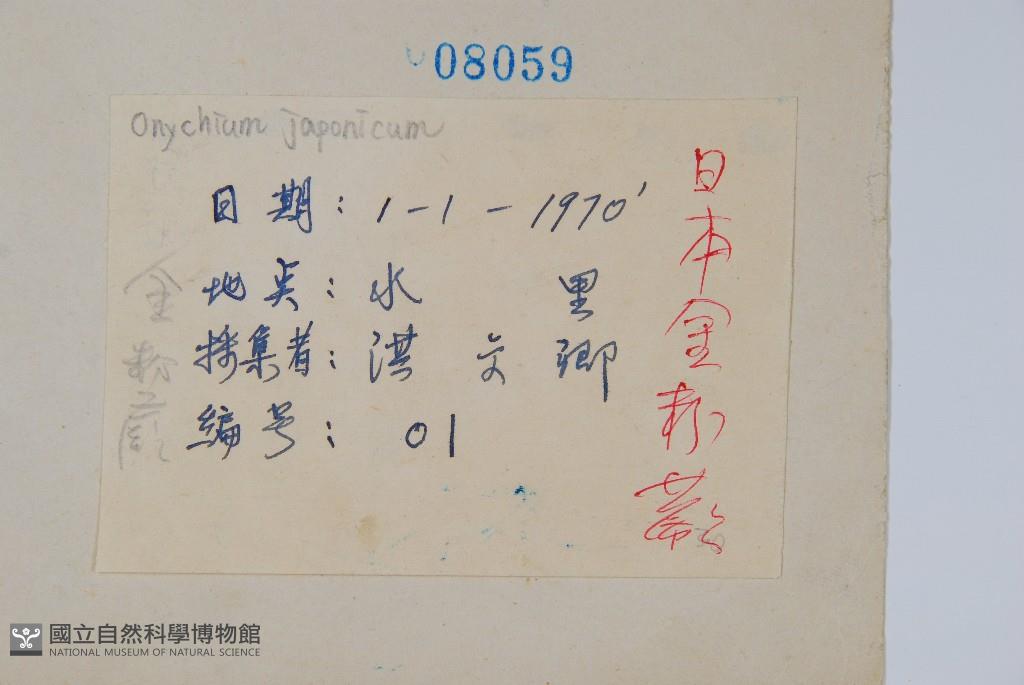 08059
Onychium japonicum
日期: 1-1-1970'
地点: 水 里
採集者: 洪 文 卿
編号: 01
日本金粉蕨
金粉蕨
國立自然科學博物館
NATIONAL MUSEUM OF NATURAL SCIENCE